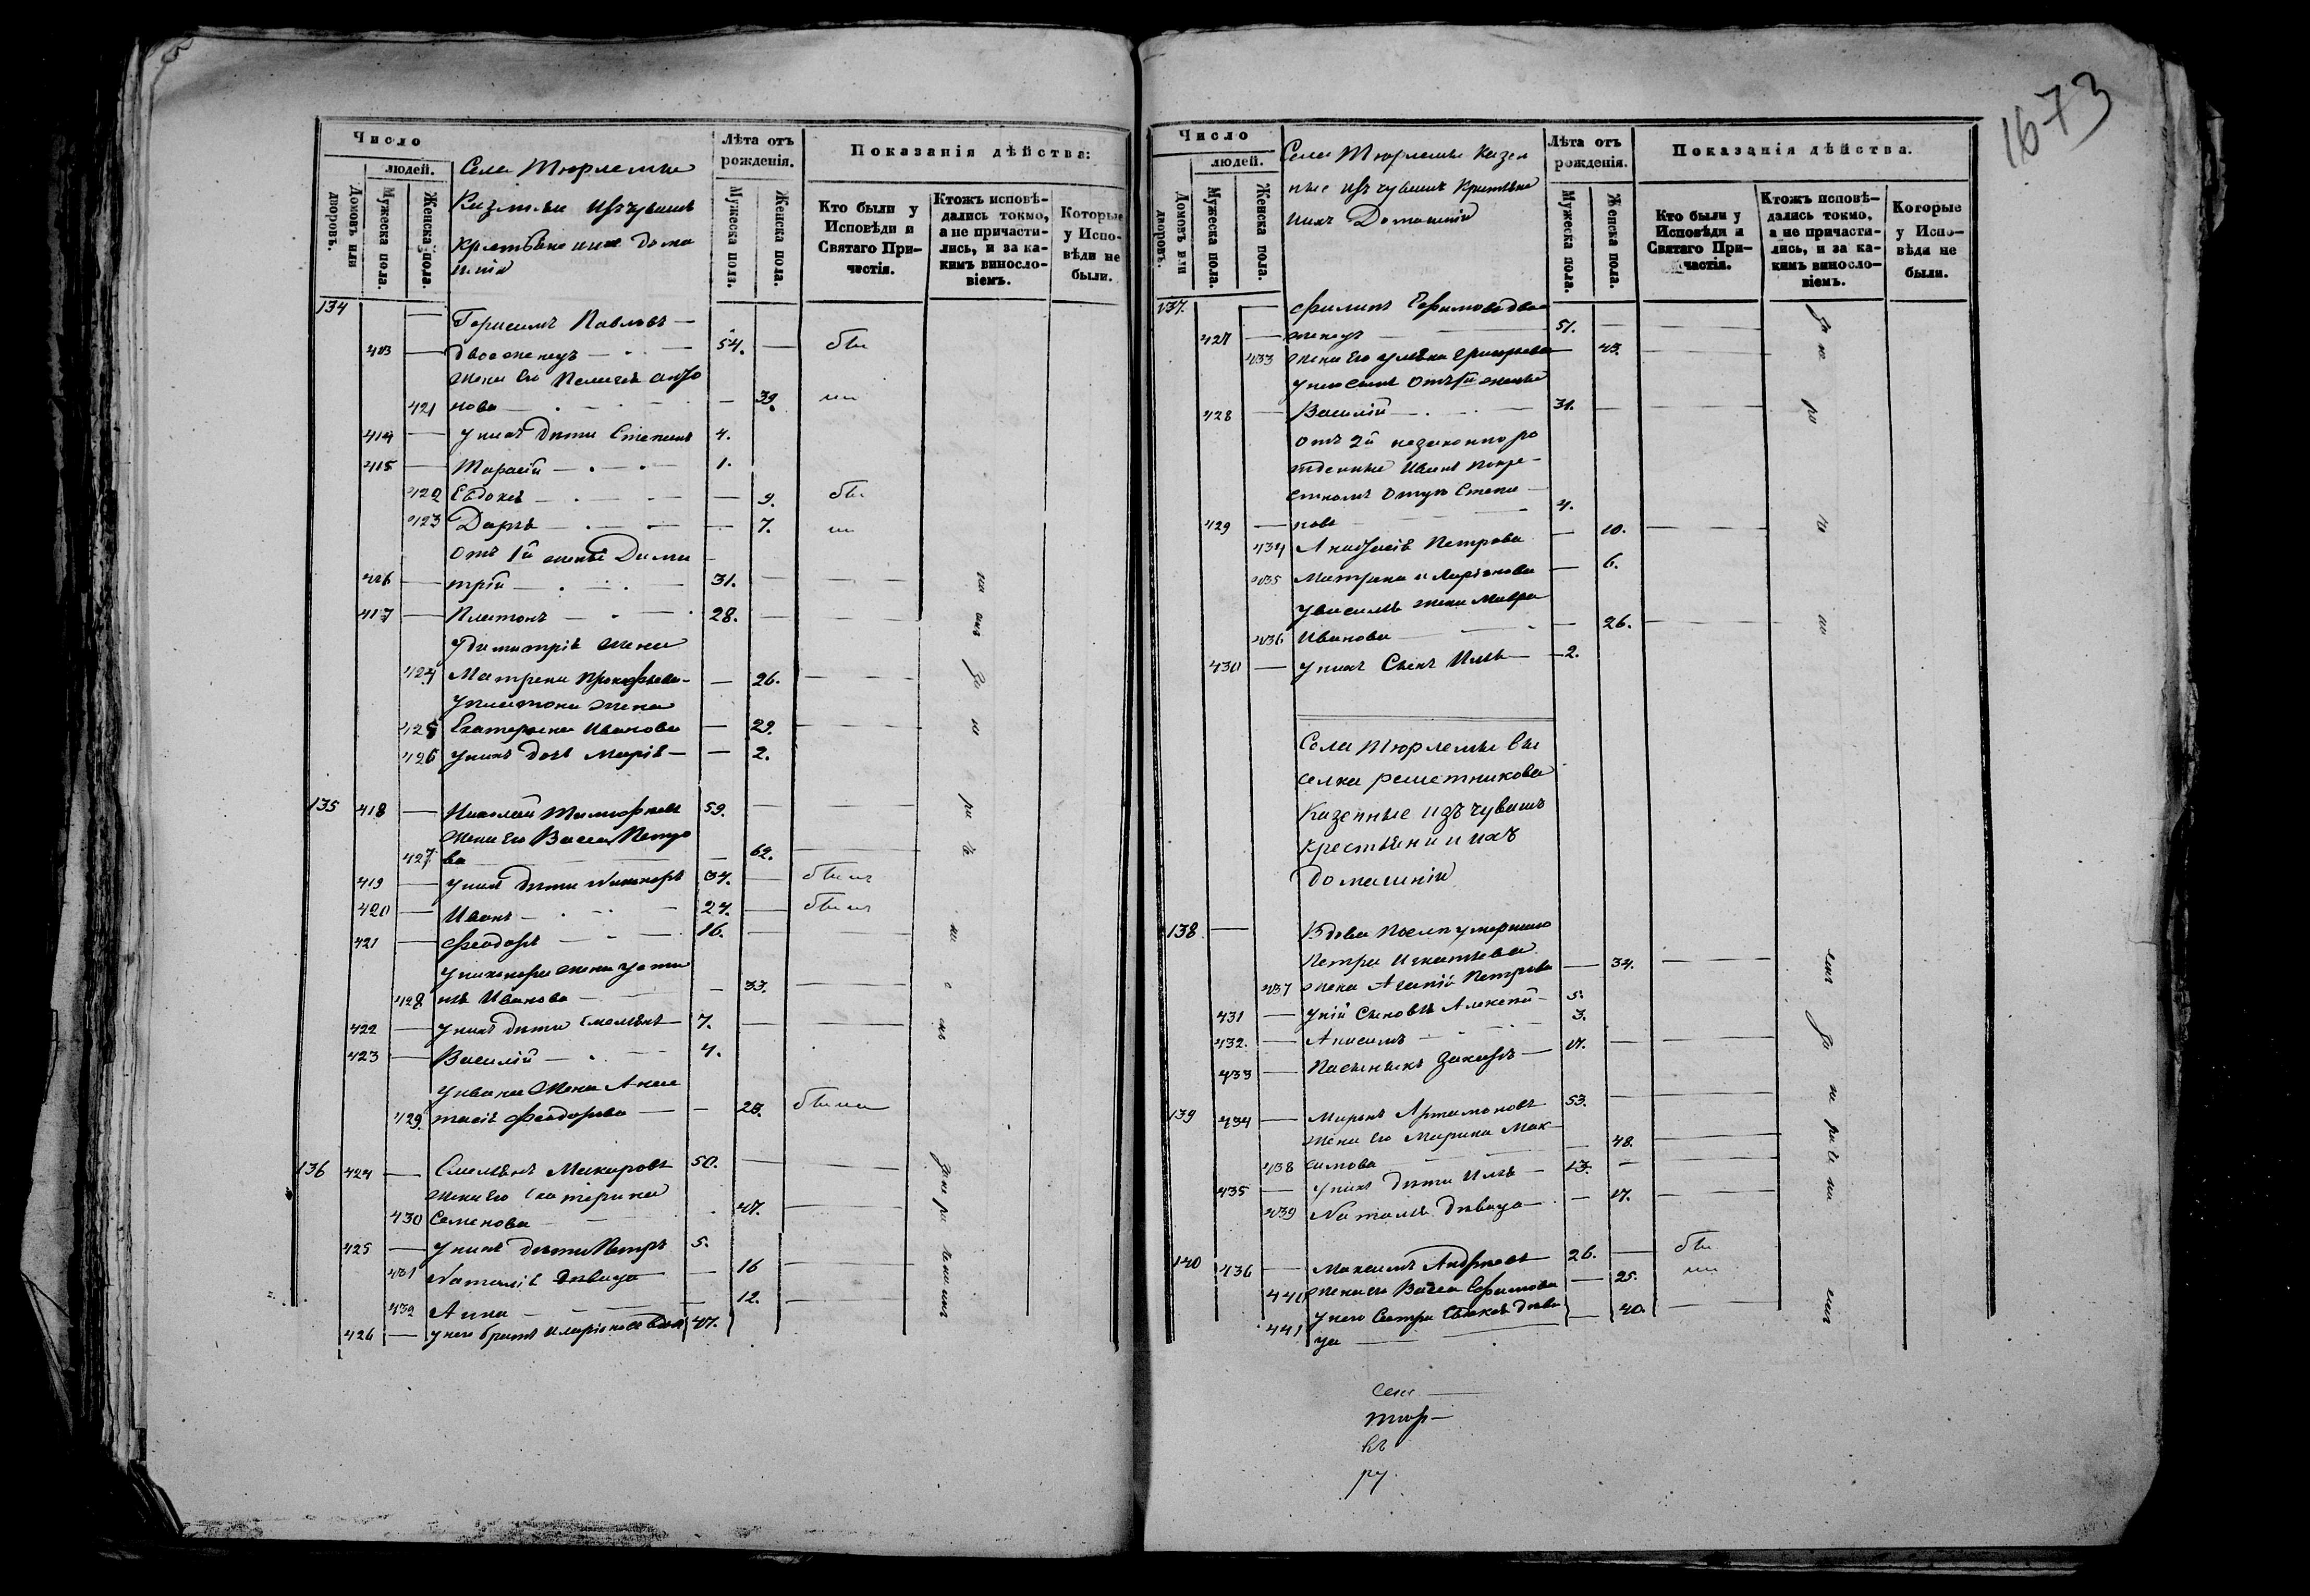 1673
Число
людей.
Домовъ или дворовъ.
Мужеска пола.
Женска пола.
Села Тюрлемы
Казенные изъ чувашъ
крестьяне и ихъ дома
шнiи
Лѣта отъ рожденiя.
Мужеска пола.
Женска пола.
Показанiя дѣйства:
Кто были у Исповѣди и Святаго Причастiя.
Ктожъ исповѣдались токмо, а не причастились, и за какимъ винословiемъ.
Которые у Исповѣди не были.
134
Герасимъ Павловъ
413 двоеженецъ 54. бы
жена его Пелагея
421 нова 39. ли
414 у нихъ дѣти Степанъ 4.
415 Тарасiй 1.
422 Евдокiя 9. бы
423 Дарья 7. ли
отъ 1й жены Дими
416 трiй 31.
417 Платонъ 28.
у димитрiя жена
424 Матрена Прокофьева 26.
у платона жена
425 Екатерина Иванова 29.
426 у нихъ дочь Марiя 2.
135 418 Николай Тимофѣевъ 59.
жена его Васса Петро
427 ва 62.
419 у нихъ дѣти Никоноръ 34. былъ
420 Иванъ 24. былъ
421 Феодоръ 16.
у никонора жена Усти
428 нья Иванова 33.
422 у нихъ дѣти Емельянъ 7.
423 Василiй 4.
у ивана жена Анас
429 тасiя Феодорова 28. была
136 424 Емельянъ Макаровъ 50.
жена его Екатерина
430 Семенова 47.
425 у нихъ дѣти Петръ 5.
431 Наталiя дѣвица 16
432 Анна 12.
426 у него братъ Иларiонъ 47.
за не ра че нiемъ
Число
людей.
Домовъ или дворовъ.
Мужеска пола.
Женска пола.
Села Тюрлемы Казен
ные изъ чувашъ крестьяне
и ихъ Домашнiи
Лѣта отъ рожденiя.
Мужеска пола.
Женска пола.
Показанiя дѣйства.
Кто были у Исповѣди и Святаго Причастiя.
Ктожъ исповѣдались токмо, а не причастились, и за какимъ винословiемъ.
Которые у Исповѣди не были.
137. Филипъ Ефимовъ двое
427 женецъ 51.
433 жена его Григорьева 43.
у него сынъ отъ 1й жены
428 Василiй 31.
отъ 2й незаконно ро
жденные Иванъ по кре
стномъ отцу Степа
429 новъ 4.
434 Анастасiя Петрова 10.
435 Матрена Иларiонова 6.
у василья жена Мавра
436 Иванова 26.
430 у нихъ Сынъ Илья 2.
Села Тюрлемы вы
селка решетникова
Казенные изъ чувашъ
крестьяни и ихъ
домашнiи
138 Вдова после умершаго
Петра Игнатьева
437 жена Агапiя Петрова 34.
431 у ней Сыновья Алексей 5.
432. Анисимъ 3.
433 Пасынокъ Захаръ 17.
139 434 Миронъ Артамоновъ 53.
жена его Марина Мак
438 симова 48.
435 у нихъ дѣти Илья 13.
439 Наталья дѣвица 17.
140 436 Максимъ Андреевъ 26. бы
440 жена его Васса Ефимова 25. ли
441 у него Сестра Евдокiя дѣви 40.
ца
Села
тюр
ка
ру